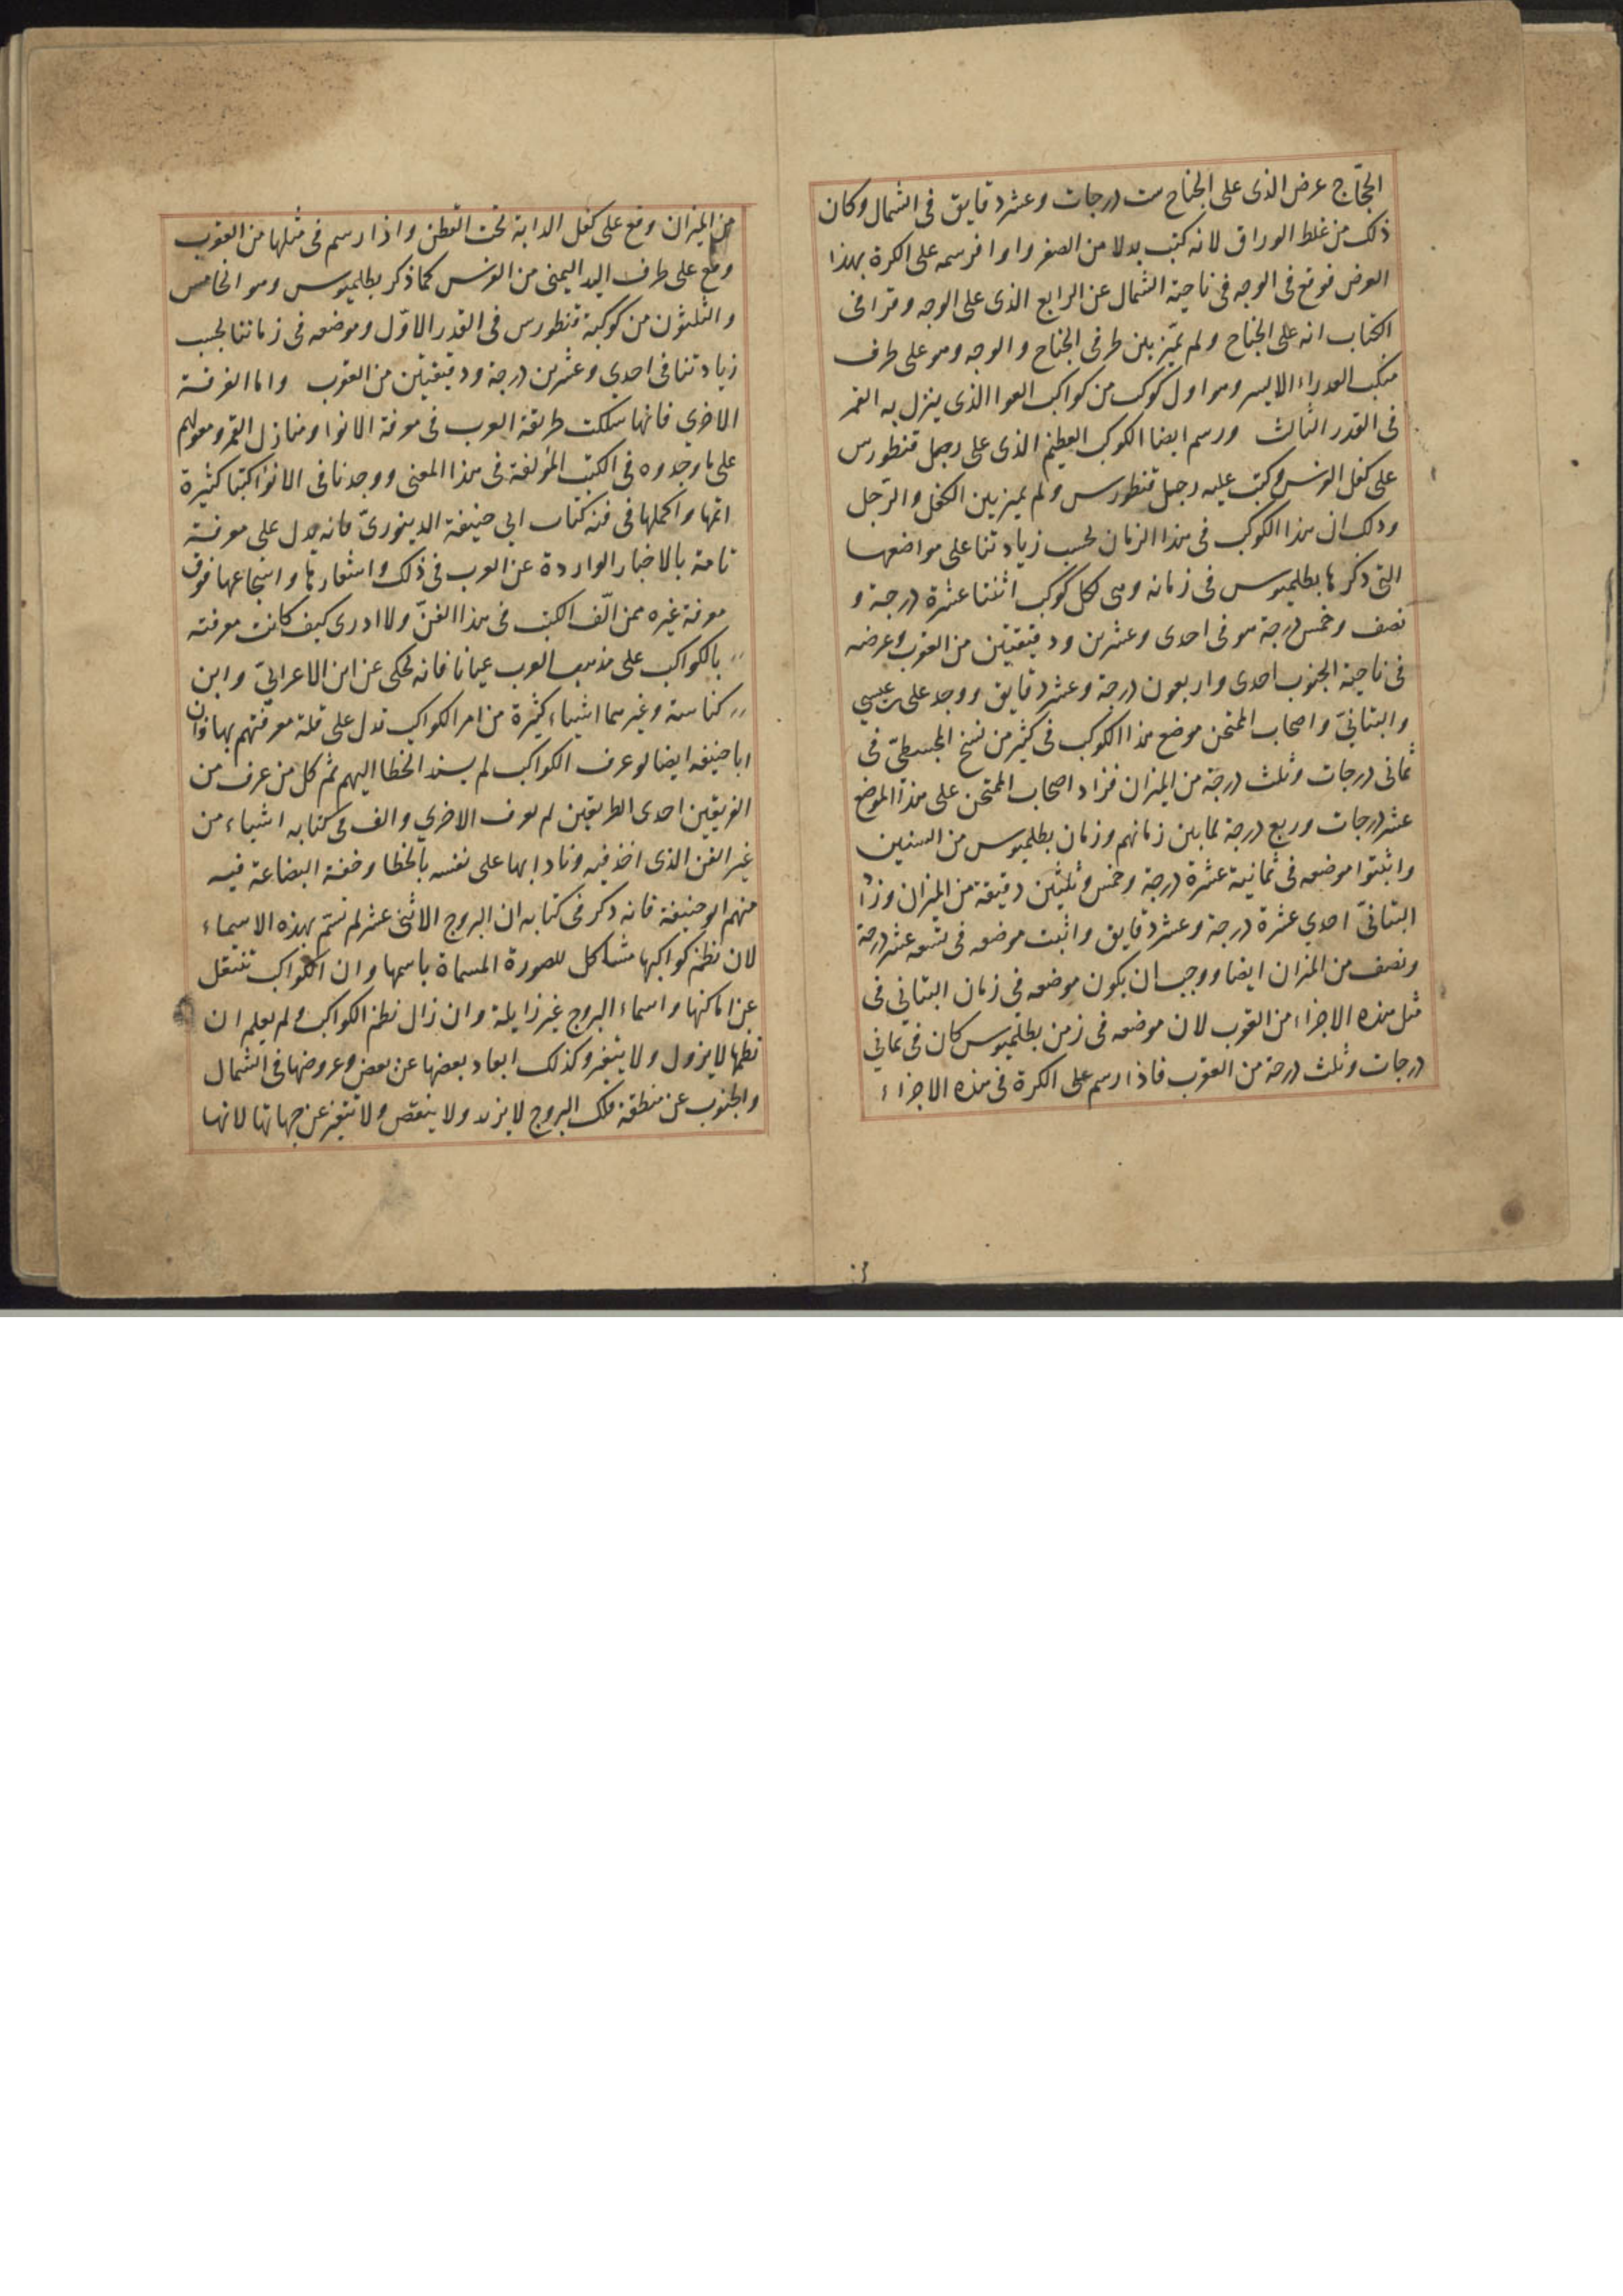 الحجّاج عرض الذى على الجناح ست درجات وعشر دقايق فى الشمال وكان
ذلك من غلط الوراق لانه كتب بدلا من الصفر واوا فرسمه على الكرة بهذا
العرض فوقع فى الوجه فى ناحية الشمال عن الرابع الذى على الوجه وقرا فى
الكتاب انه على الجناح ولم يميّز بين طرفى الجناح والوجه وهو على طرف
منكب العذراء الايسر وهو اول كوكب من كواكب العوا الذى ينزل به القمر
فى القدر الثالث ورسم ايضا الكوكب العظيم الذى على رجل قنطورس
على كفل الفرس وكتب عليه رجل قنطورس ولم يميز بين الكفل والرّجل
وذلك ان هذا الكوكب فى هذا الزمان بحسب زيادتنا على مواضعها
التى ذكرها بطلميوس فى زمانه وهى لكل كوكب اثنتا عشرة درجة و
نصف وخمس درجة هو فى احدى وعشرين ودقيقتين من العقرب وعرضه
فى ناحية الجنوب احدى واربعون درجة وعشر دقايق ووجد على بن عيسي
والبتانىّ واصحاب الممتحن موضع هذا الكوكب فى كثير من نسخ المجسطىّ فى
ثمانى درجات وثلث درجة من الميزان فزاد اصحاب الممتحن على هذا الموضع
عشر درجات وربع درجة لما بين زمانهم وزمان بطلميوس من السنين
واثبتوا موضعه فى ثمانية عشرة درجة وخمس وثلثين دقيقة من الميزان وزاد
البتانىّ احدي عشرة درجة وعشر دقايق واثبت موضعه فى تسعه عشر درجة
ونصف من الميزان ايضا ووجب ان يكون موضعه فى زمان البتانى فى
مثل هذه الاجزاء من العقرب لان موضعه فى زمن بطلميوس كان فى ثمانى
درجات وثلث درجة من العقرب فاذا رسم على الكرة فى هذه الاجزاء
من الميزان وقع على كفل الدابة تحت القطن واذا رسم فى مثلها من العقرب
وقع على طرف اليد اليمنى من الفرس كما ذكر بطلميوس وهو الخامس
والثلثون من كوكبة قنطورس فى القدر الاوّل وموضعه فى زماننا بحسب
زيادتنا فى احدي وعشرين درجة ودقيقتين من العقرب واما الفرقة
الاخري فانها سلكت طريقة العرب فى معرفة الانوا ومنازل القمر ومعولهم
على ما وجدوه فى الكتب المؤلفة فى هذا المعنى ووجدنا فى الانوا كتبا كثيرة
اتمها واكملها فى فنه كتاب ابي حنيفة الدينورىّ فانه يدل على معرفة
تامة بالاخبار الواردة عن العرب فى ذلك واشعارها واسجاعها فوق
معرفة غيره ممن الّف الكتب فى هذا الفنّ ولا ادرى كيف كانت معرفته
بالكواكب على مذهب العرب عيانا فانه يحكى عن ابن الاعرابىّ وابن
كناسة وغيرهما اشياء كثيرة من امر الكواكب تدل على قلة معرفتهم بها وان
ابا حنيفه ايضا لو عرف الكواكب لم يسند الخطا اليهم ثم كل من عرف من
الفريقين احدى الطريقين لم يعرف الاخري والف فى كتابه اشياء من
غير الفن الذى اخذ فيه ونادا بها على نفسه بالخطا وخفة البضاعة فيه
منهم ابو حنيفة فانه ذكر فى كتابه ان البروج الاثنى عشر لم تسم بهذه الاسماء
لان نظم كواكبها مشاكل للصورة المسماة باسمها وان الكواكب تنتقل
عن اماكنها واسماء البروج غير زايلة وان زال نظم الكواكب ولم يعلم ان
نظمها لا يزول ولا يتغير وكذلك ابعاد بعضها عن بعض وعروضها فى الشمال
والجنوب عن منطقة فلك البروج لا يزيد ولا ينقص ولا تتغير عن جهاتها لانها